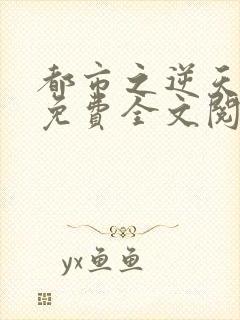 都市之逆天
免費全文閱
yx鱼鱼